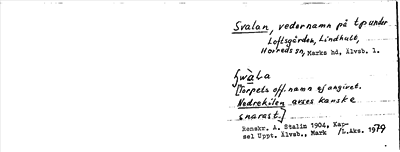 Svalan, vedernamn på tp under
Loftsgården, Lindhult,
Horreds sn, Marks hd, Älvsb. l.
[Torpets off. namn ej angivet.
Nedrekilen anses kanske
snarast.]
Renskr. A. Stalin 1904, Kap-
sel Uppt. Älvsb., Mark /L.Aks. 1979